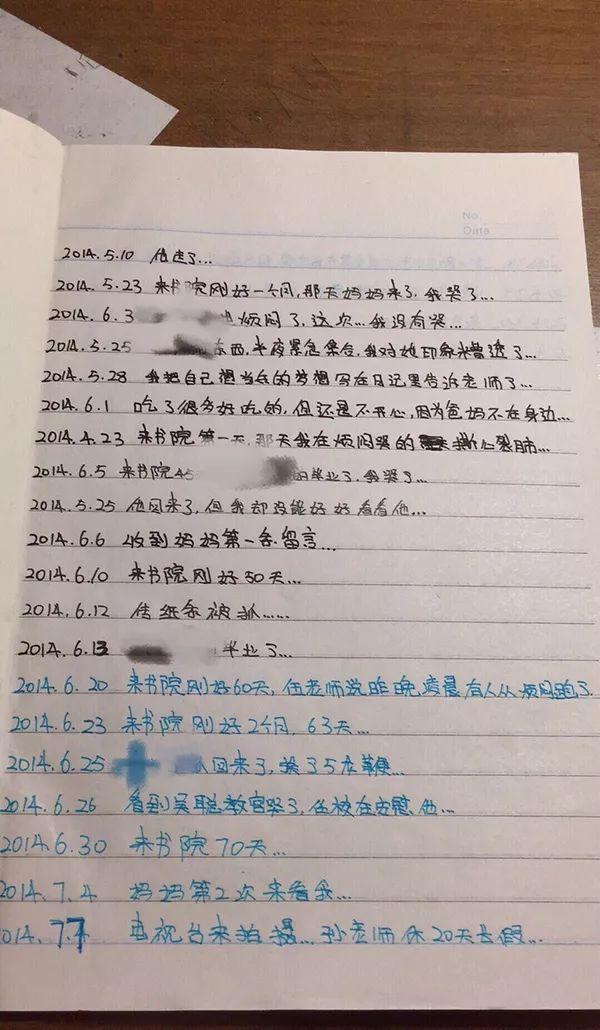 No.
Date
2014.5.10 他走了...
2014.5.23 来书院刚好一个月,那天妈妈来了,我哭了...
2014.6.3 烦闷了,这次...我没有哭...
2014.5.25 东西,半夜紧急集合,我对她印象糟透了...
2014.5.28 我把自己想当兵的梦想写在日记里告诉老师了...
2014.6.1 吃了很多好吃的,但还是不开心,因为爸妈不在身边...
2014.4.23 来书院第一天,那天我在烦闷哭的撕心裂肺...
2014.6.5 来书院45 的毕业了,我哭了...
2014.5.25 他回来了,但我却没能好好看看他...
2014.6.6 收到妈妈第一条留言...
2014.6.10 来书院刚好50天...
2014.6.12 传纸条被抓......
2014.6.13 毕业了...
2014.6.20 来书院刚好60天,伍老师说昨晚凌晨有人从烦闷跑了.
2014.6.23 来书院刚好2个月,63天...
2014.6.25 回来了,挨了5龙鞭...
2014.6.26 看到吴聪教官哭了,伍被在安慰他...
2014.6.30 来书院70天...
2014.7.4 妈妈第2次来看我...
2014.7.7 电视台来拍摄...孙老师休20天长假...